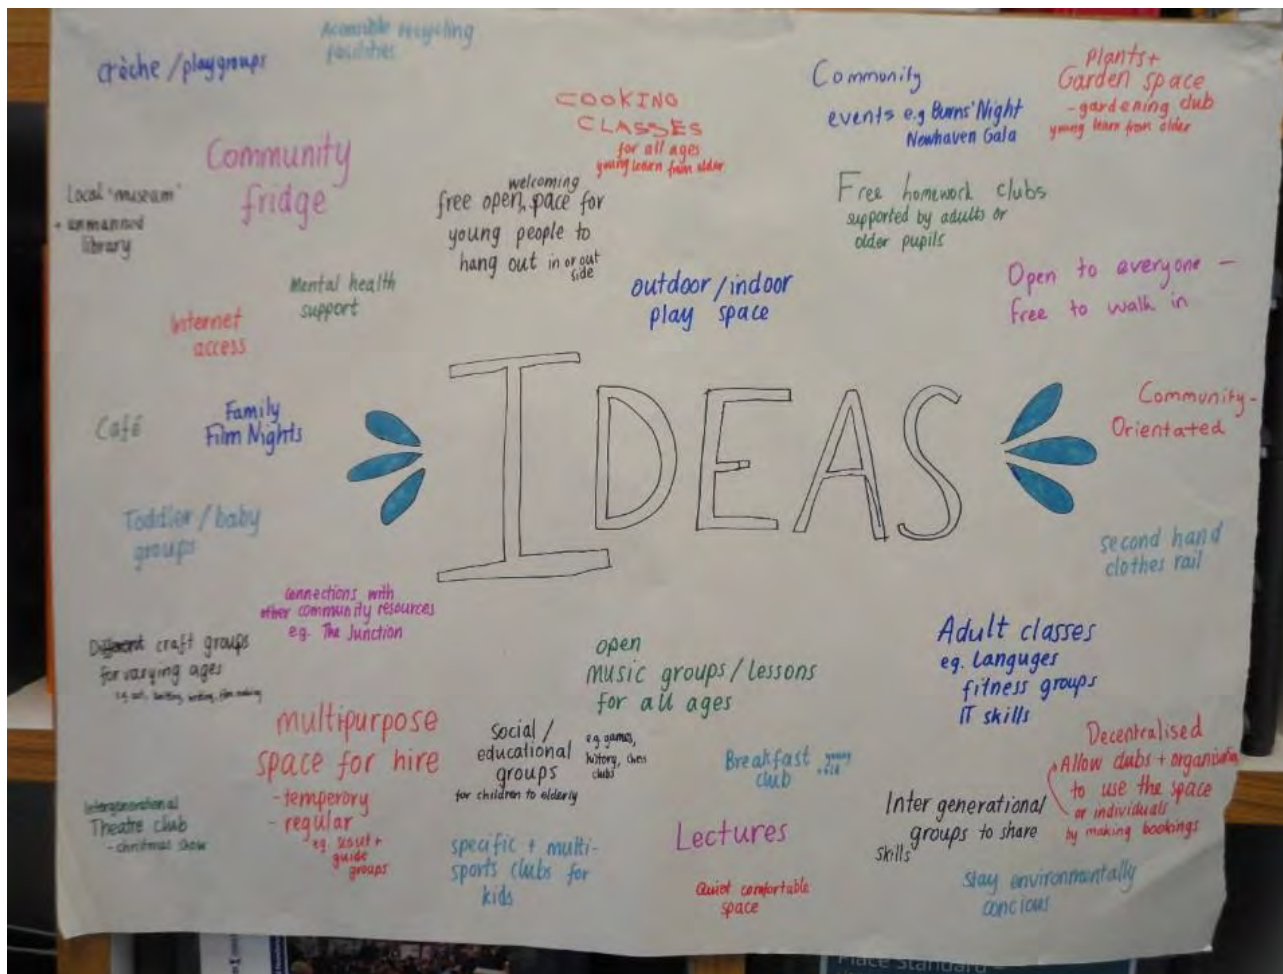 crèche / playgroups
Accessible recycling
facilities
COOKING
CLASSES
for all ages
young learn from older
Community
events e.g Burns' Night
Newhaven Gala
Plants +
Garden space
- gardening club
young learn from older
Community
fridge
Local 'museum'
+ unmanned
library
welcoming
free open space for
young people to
hang out in or out
side
Free homework clubs
supported by adults or
older pupils
Mental health
support
Internet
access
outdoor / indoor
play space
Open to everyone -
free to walk in
Café
Family
Film Nights
IDEAS
Community-
Orientated
Toddler / baby
groups
second hand
clothes rail
Connections with
other community resources
e.g. The Junction
Different craft groups
for varying ages
e.g. art, knitting, writing, film making
open
music groups / lessons
for all ages
Adult classes
eg. Languges
fitness groups
IT skills
multipurpose
space for hire
- temperory
- regular
eg. scout +
guide
groups
Social /
educational
groups
for children to elderly
e.g. games,
history, chess
clubs
Breakfast
club
young
+ old
Decentralised
Allow clubs + organisations
to use the space
or individuals
by making bookings
Intergenerational
Theatre club
- christmas show
specific + multi-
sports clubs for
kids
Lectures
Quiet comfortable
space
Inter generational
groups to share
skills
Stay environmentally
concious
Place Standard